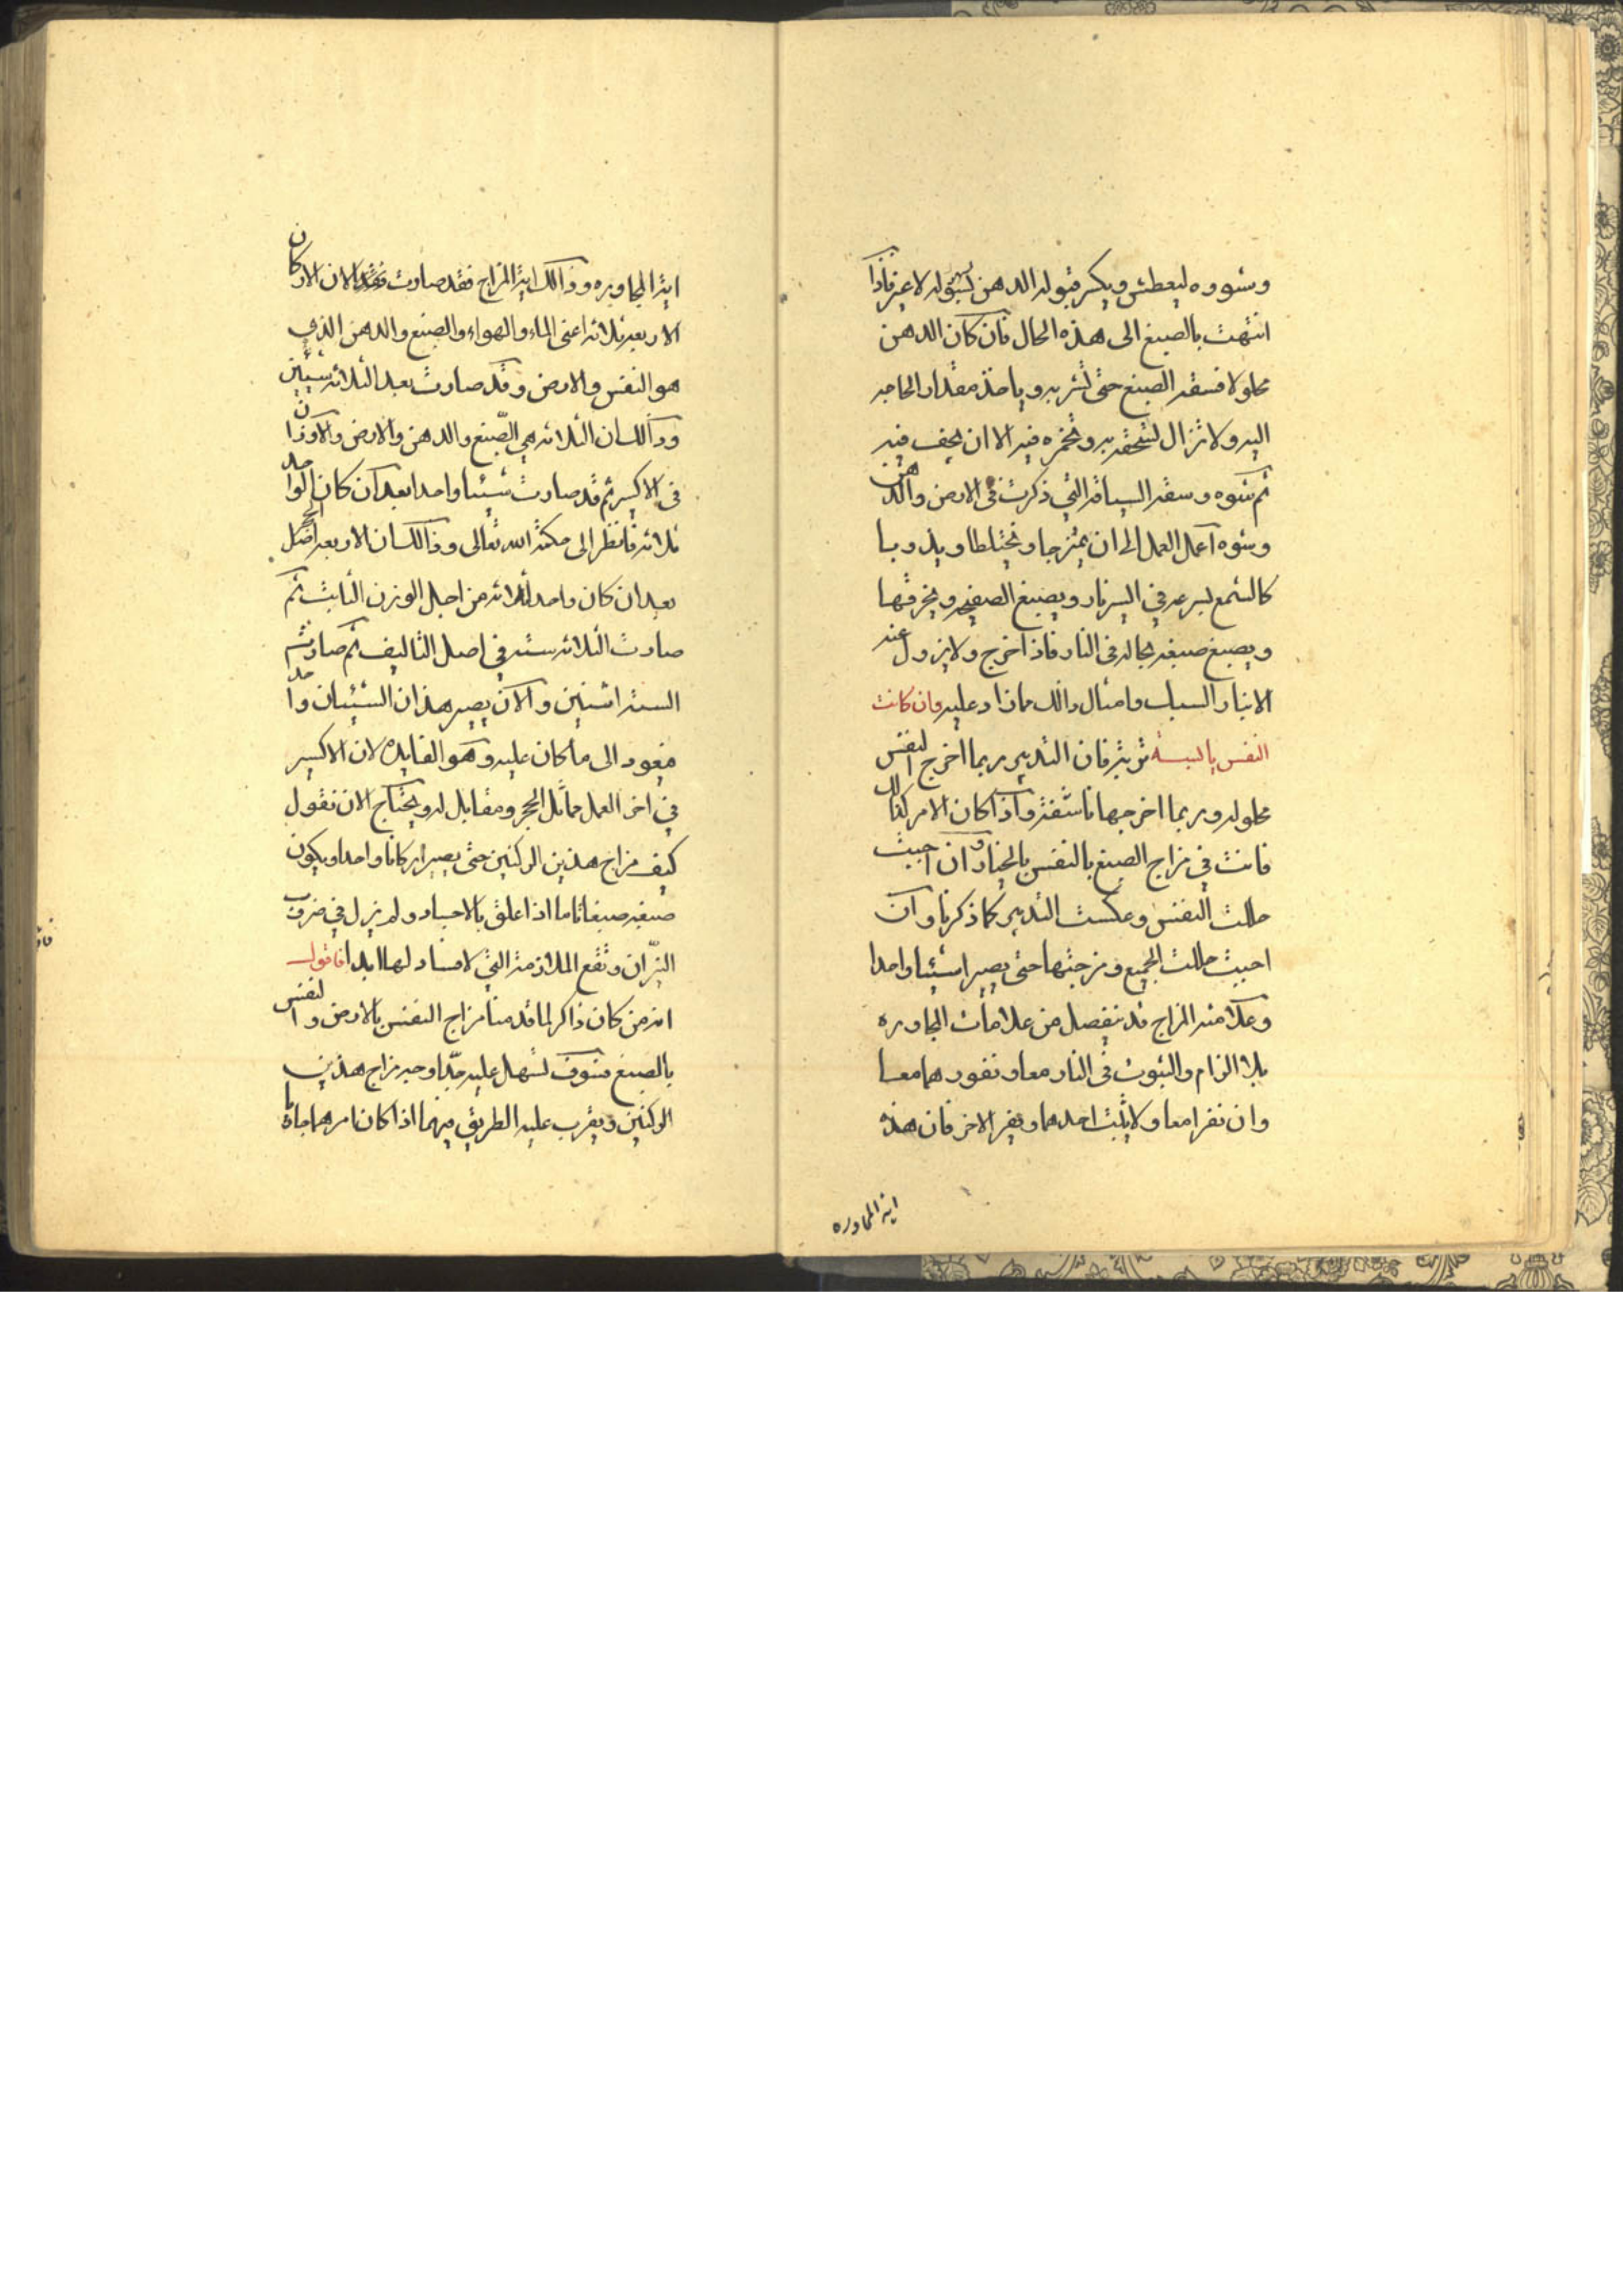 وشووه ليعطش ويكثر قبوله الدهن لسهوله لا غير فاذا
انتهت بالصبغ الى هذه الحال فان كان الدهن
محلولا فسقه الصبغ حتى تشربه وياخذ مقدار الحاجه
اليه ولا تزال تسحقه به وتخمره فيه الا ان يجف فيه
ثم شوه وسقه السياقه التي ذكرت في الارض والدهن
وشوه اعمل العمل الى ان يمتزجا ويختلطا ويذوبا
كالشمع بسرعه في اليسر نار ويصبغ الصفيحه ويخرقها
ويصبغ صبغه بحاله في النار فاذا اخرج ولا يزول عنه
الا بنار السبك وامثال ذالك مما زاد عليه وان كانت
النفس يابسه تربيه فان التدبير ربما اخرج النفس
محلوله وربما اخرجها ناشفه واذا كان الامر كذالك
فانت في مزاج الصبغ بالنفس بالخيار وان احببت
حللت النفس وعكست التدبير كما ذكرنا وان
احببت حللت الجميع ومزجتها حتى يصيرا شيئا واحدا
وعلامته المزاج قد تنفصل من علامات المجاوره
بلا الزام والثبوت في النار معا ونفورهما معا
وان نفرا معا ولا يثبت احدهما ويفر الاخر فان هذه
ايه المجاوره
ايه المجاوره وذالك ايه المزاج فقد صارت الان الاركان
الاربعه ثلاثه اعنى الماء والهواء والصبغ والدهن الذي
هو النفس والارض وقد صارت بعد الثلاثه شيئين
وذالك ان الثلاثه هي الصّبغ والدهن والارض والاوزان
في الاكسير ثم قد صارت شيئا واحدا بعد ان كان الواحد
ثلاثه فانظر الى حكمة الله تعالى وذالك ان الاربعه اصل الحجر
بعد ان كان واحد ثلاثه من اجل الوزن الثابت ثم
صارت الثلاثه سته في اصل التاليف ثم صارت
السته اثنين والان يصير هذان الشيئان واحدا
فيعود الى ما كان عليه وهو الفايده لان الاكسير
في اخر العمل مماثل الحجر ومقابل له ويحتاج الان نقول
كيف مزاج هذين الركنين حتى يصيرا ركنا واحدا ويكون
صبغه صبغا تاما اذا علق بالاجساد ولم يزل في ضرب
النيّران وتقع الملازمة التي لا فساد لها ابدا فاقول
انه من كان ذاكر لما قدمنا مزاج النفس بالارض والنفس
بالصبغ فسوف تسهل عليه جدّا وجه مزاج هذين
الركنين ويقرب عليه الطريق فيهما اذا كان امرهما جاريا